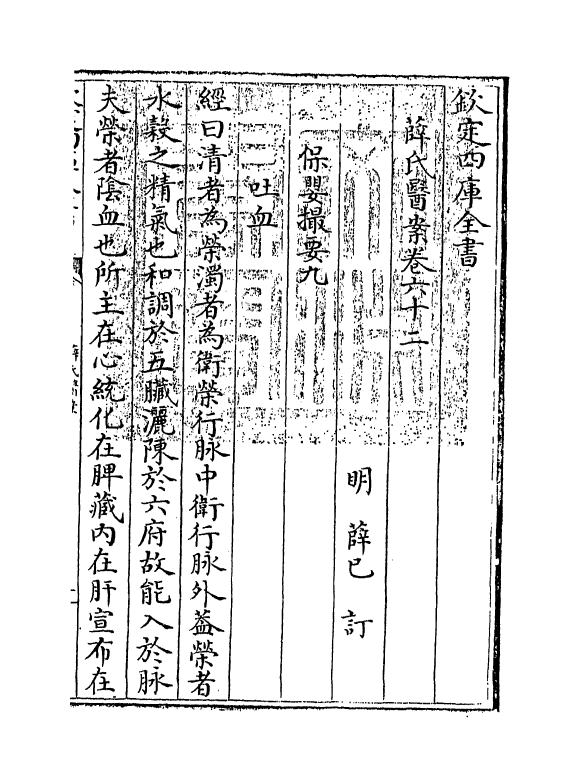 欽定四庫全書
薛氏醫案卷六十二
明 薛己 訂
保嬰撮要九
吐血
經曰清者為榮濁者為衛榮行脉中衛行脉外葢榮者
水穀之精氣也和調於五臟灑陳於六府故能入於脉
夫榮者陰血也所主在心統化在脾藏内在肝宣布在